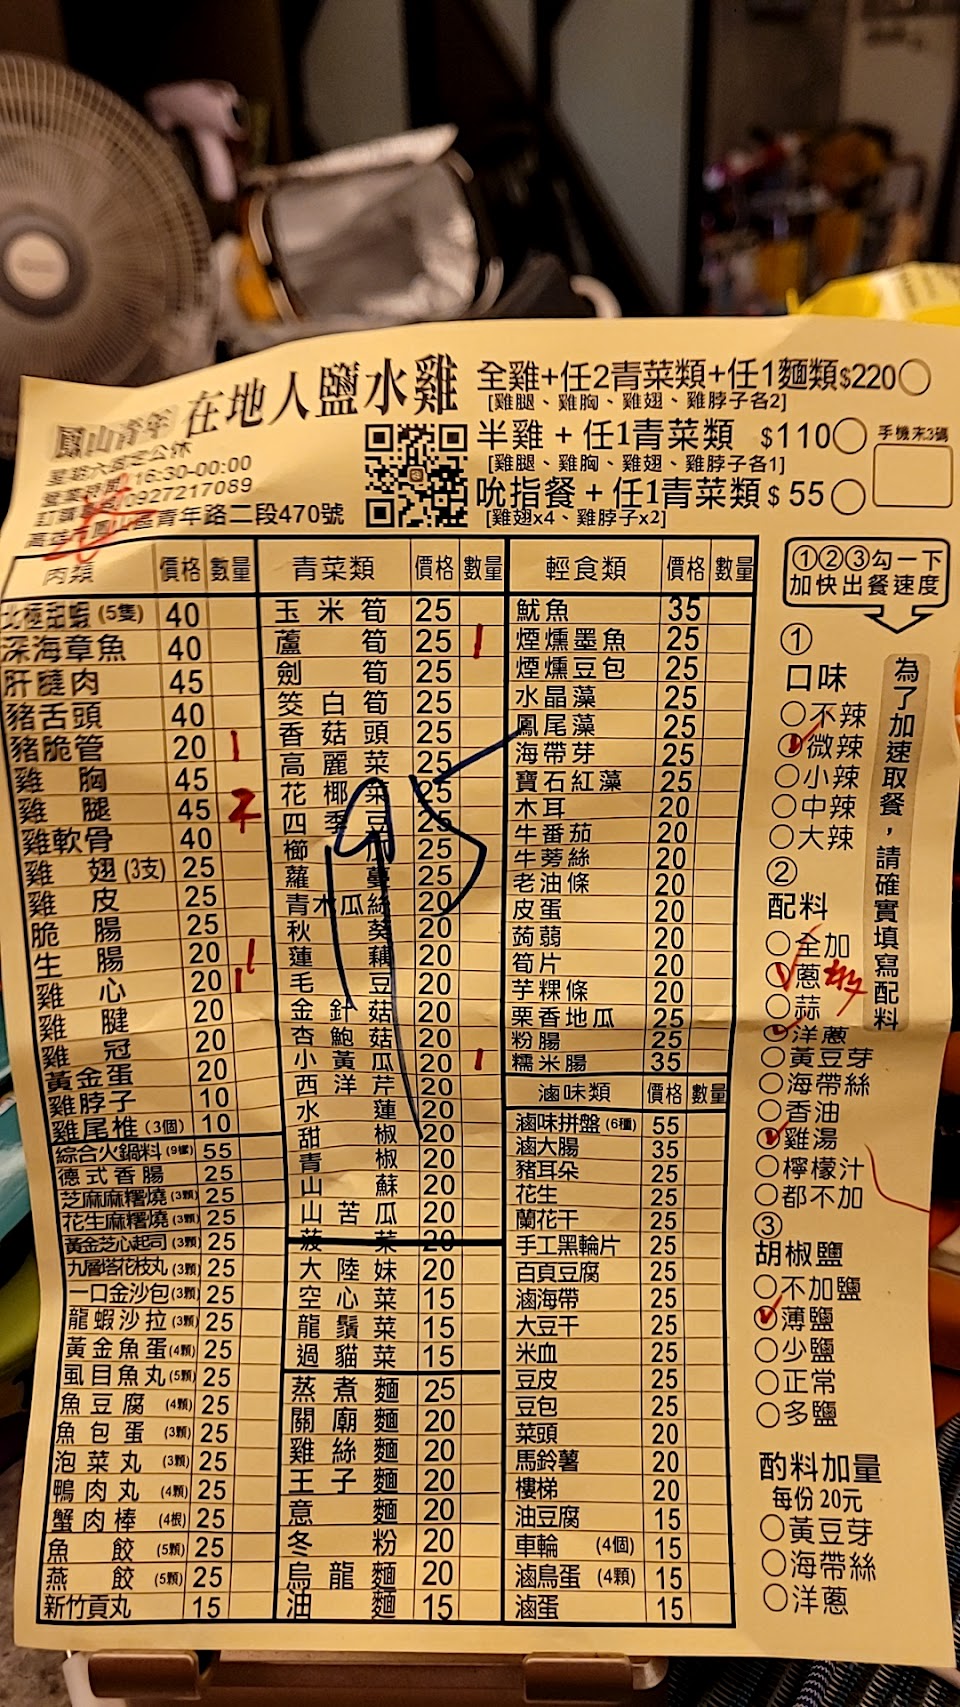 鳳山青年 在地人鹽水雞
星期六固定公休
營業時間 16:30-00:00
訂購專線 0927217089
高雄市鳳山區青年路二段470號
全雞+任2青菜類+任1麵類$220
[雞腿、雞胸、雞翅、雞脖子各2]
半雞 + 任1青菜類 $110
[雞腿、雞胸、雞翅、雞脖子各1]
吮指餐 + 任1青菜類 $ 55
[雞翅x4、雞脖子x2]
手機末3碼
肉類 價格 數量
北極甜蝦 (5隻) 40
深海章魚 40
肝腱肉 45
豬舌頭 40
豬脆管 20 1
雞胸 45
雞腿 45 2
雞軟骨 40
雞翅 (3支) 25
雞皮 25
脆腸 25
生腸 20 1
雞心 20 1
雞腱 20
雞冠 20
黃金蛋 20
雞脖子 10
雞尾椎 (3個) 10
綜合火鍋料 (9樣) 55
德式香腸 25
芝麻麻糬燒 (3顆) 25
花生麻糬燒 (3顆) 25
黃金芝心起司 (3顆) 25
九層塔花枝丸 (3顆) 25
一口金沙包 (3顆) 25
龍蝦沙拉 (3顆) 25
黃金魚蛋 (4顆) 25
虱目魚丸 (5顆) 25
魚豆腐 (4顆) 25
魚包蛋 (3顆) 25
泡菜丸 (3顆) 25
鴨肉丸 (4顆) 25
蟹肉棒 (4根) 25
魚餃 (5顆) 25
燕餃 (5顆) 25
新竹貢丸 15
青菜類 價格 數量
玉米筍 25
蘆筍 25 1
劍筍 25
筊白筍 25
香菇頭 25
高麗菜 25
花椰菜 25
四季豆 25
櫛瓜 25
蘿蔓 25
青木瓜絲 20
秋葵 20
蓮藕 20
毛豆 20
金針菇 20
杏鮑菇 20
小黃瓜 20 1
西洋芹 20
水蓮 20
甜椒 20
青椒 20
山蘇 20
山苦瓜 20
菠菜 20
大陸妹 20
空心菜 15
龍鬚菜 15
過貓菜 15
蒸煮麵 25
關廟麵 20
雞絲麵 20
王子麵 20
意麵 20
冬粉 20
烏龍麵 20
油麵 15
輕食類 價格 數量
魷魚 35
煙燻墨魚 25
煙燻豆包 25
水晶藻 25
鳳尾藻 25
海帶芽 25
寶石紅藻 25
木耳 20
牛番茄 20
牛蒡絲 20
老油條 20
皮蛋 20
蒟蒻 20
筍片 20
芋粿條 20
栗香地瓜 25
粉腸 25
糯米腸 35
滷味類 價格 數量
滷味拼盤 (6種) 55
滷大腸 35
豬耳朵 25
花生 25
蘭花干 25
手工黑輪片 25
百頁豆腐 25
滷海帶 25
大豆干 25
米血 25
豆皮 25
豆包 25
菜頭 20
馬鈴薯 20
樓梯 20
油豆腐 15
車輪 (4個) 15
滷鳥蛋 (4顆) 15
滷蛋 15
95
①②③勾一下
加快出餐速度
為了加速取餐，請確實填寫配料
①
口味
不辣
微辣
小辣
中辣
大辣
②
配料
全加
蔥
蒜
洋蔥
黃豆芽
海帶絲
香油
雞湯
檸檬汁
都不加
③
胡椒鹽
不加鹽
薄鹽
少鹽
正常
多鹽
酌料加量
每份20元
黃豆芽
海帶絲
洋蔥